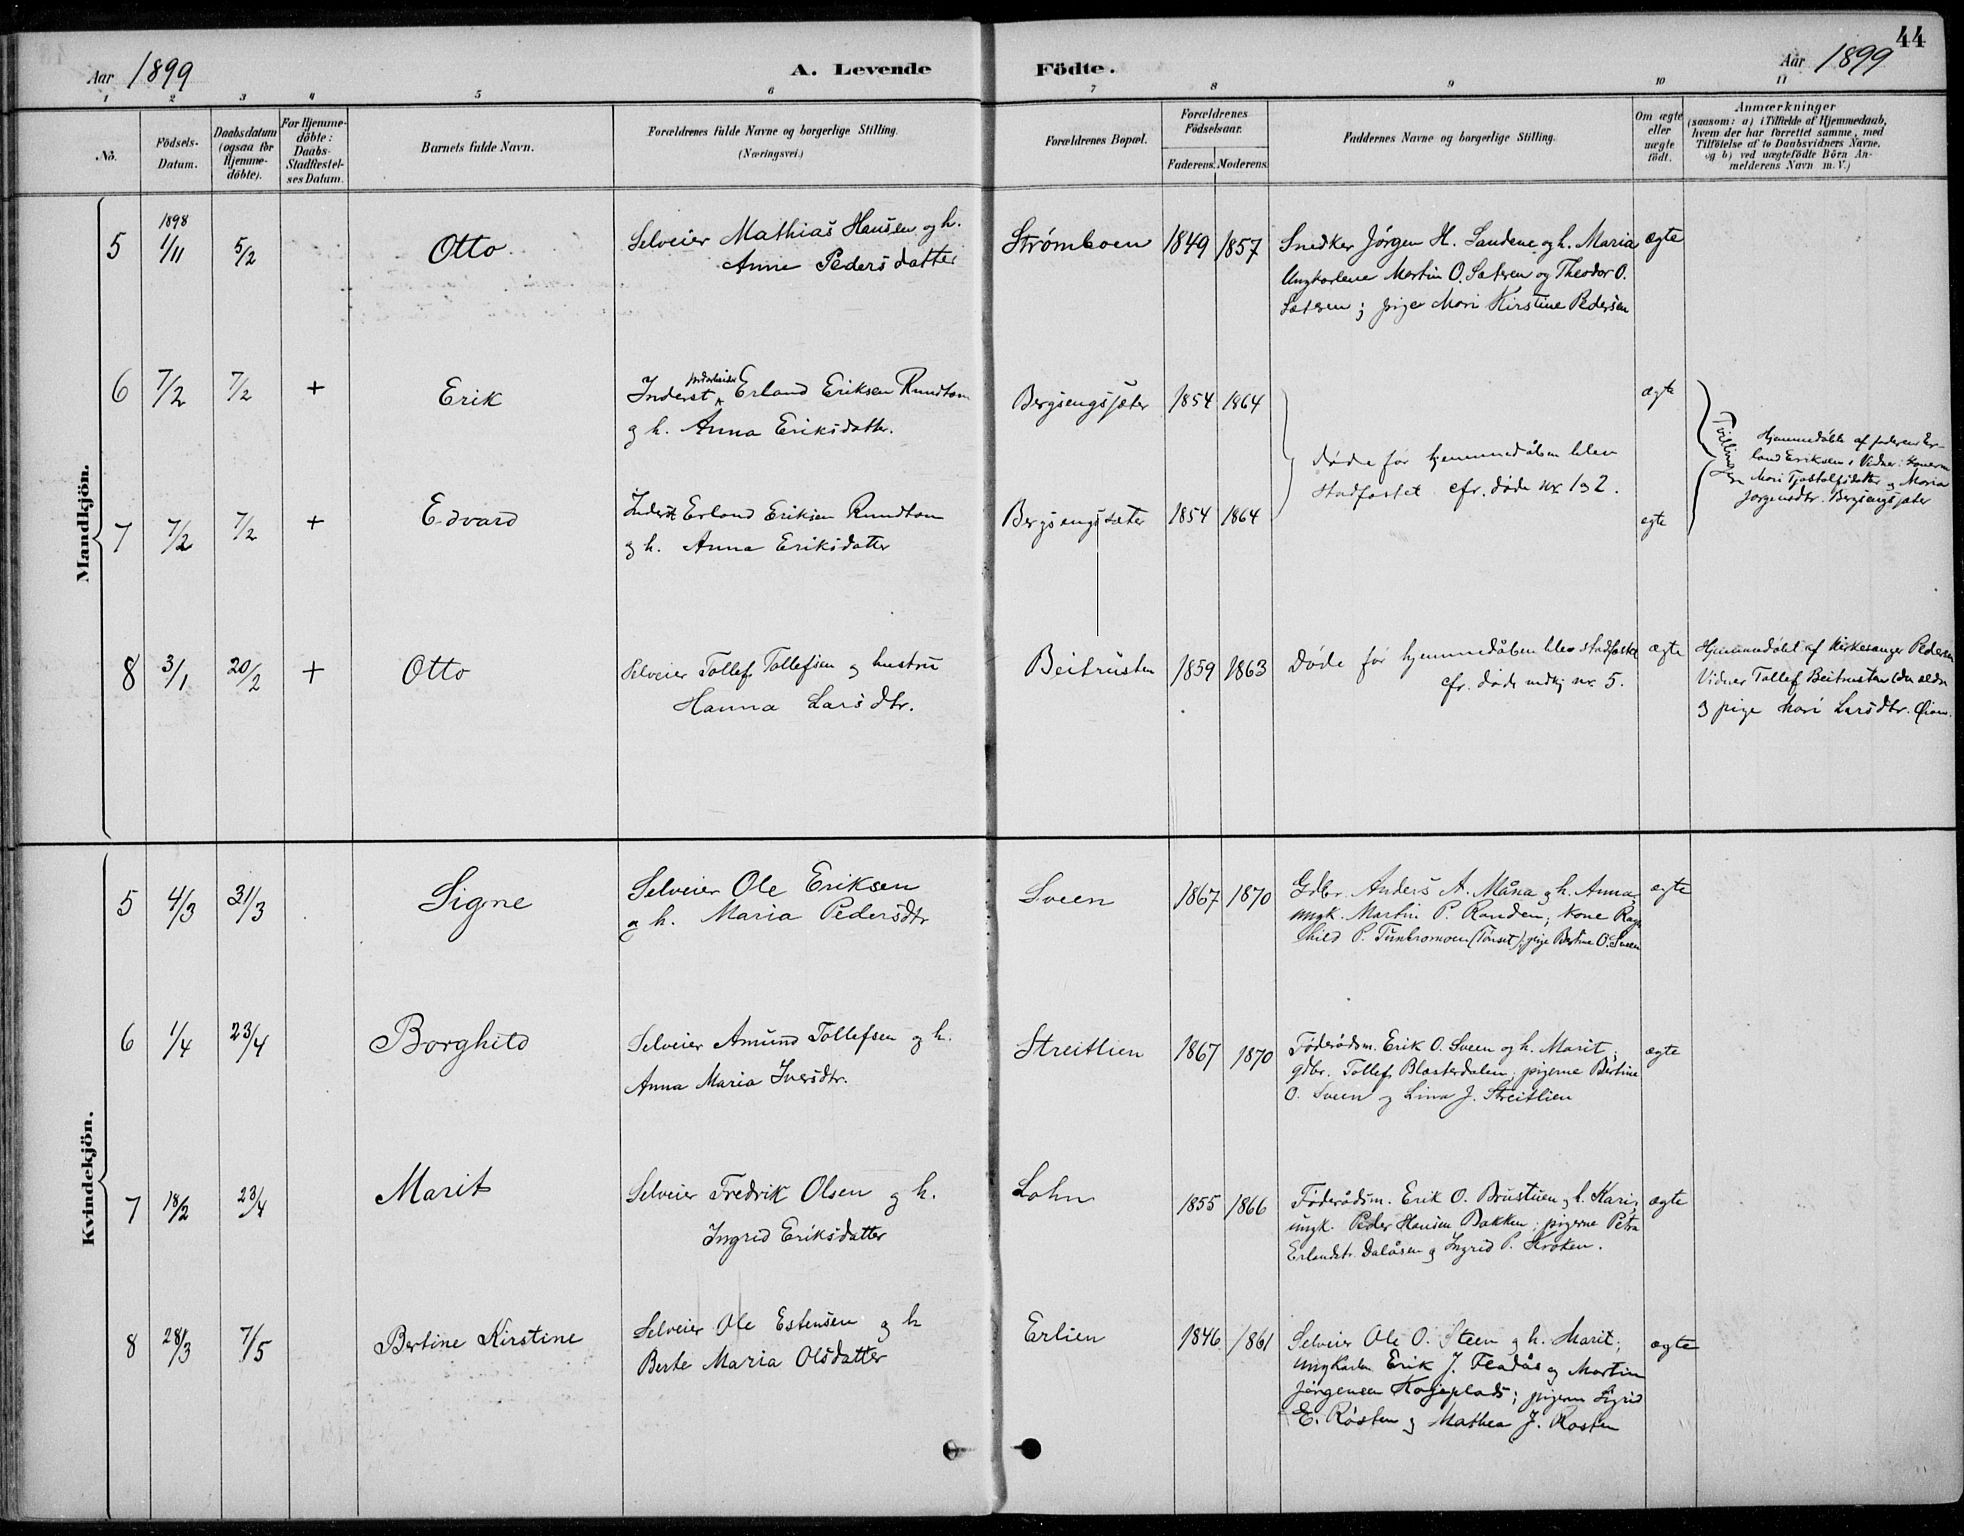 44
Aar 1899
A. Levende Födte.
Aar 1899
1 2 3 4 5 6 7 8 9 10 11
No.
Födsels-Datum.
Daabsdatum (ogsaa for Hjemme-döbte).
For Hjemme-döbte: Daabs-Stadfæstel-ses Datum.
Barnets fulde Navn.
Forældrenes fulde Navne og borgerlige Stilling.
(Næringsvei.)
Forældrenes Bopæl.
Forældrenes Födselsaar.
Faderens. Moderens.
Faddernes Navne og borgerlige Stilling.
Om ægte eller uægte födt.
Anmærkninger
(saasom: a) i Tilfælde af Hjemmedaab,
hvem der har forrettet samme, med
Tilföielse af to Daabsvidners Navne,
og b) ved uægtefödte Börn An-
melderens Navn m. V.)
Mandkjön.
5 1898 1/11 5/2 Otto
Selveier Mathias Hansen og h.
Anne Pedersdatter
Strømboen 1849 1857
Snedker Jørgen H. Sandene og h. Maria
Ungkarlene Martin O. Sæteren og Theodor O.
Sæteren; pige Mari Kirstine Pedersen
ægte
6 7/2 7/2 + Erik
Inderst Erland Eriksen Rundtom
og h. Anna Eriksdatter.
Bergsengsjæter 1854 1864
ægte
døde før hjemmedåben blev
stadfæstet cfr. døde nr. 1 & 2.
Tvillinger
Hjemmedöbte af faderen Er-
land Eriksen, Vidner: konerne
Mari Tjostolfsdatter og Maria
Jørgensdtr. Bergsengsjæter
7 7/2 7/2 + Edvard
Inderst Erland Eriksen Rundtom
og h. Anna Eriksdatter
Bergsengsæter 1854 1864
ægte
8 3/1 20/2 + Otto
Selveier Tollef Tollefsen og hustru
Hanna Larsdtr.
Beitrusten 1859 1863
Døde før hjemmedåben blev stadfæstet
cfr. døde mdkj nr. 5.
ægte
Hjemmedöbt af Kirkesanger Pedersen
Vidner Tollef Beitrusten (den ældre
og pige Mari Larsdtr.
Kvindekjön.
5 4/3 31/3 Signe
Selveier Ole Eriksen
og h. Maria Pedersdtr
Sveen 1867 1870
Gdbr. Anders A. Måna og h. Anna;
ungk. Martin P. Randen; kone Rag-
hild P. Tunbromoen (Tönset); pige Bertine O. Sveen
ægte
6 1/4 23/4 Borghild
Selveier Amund Tollefsen og h.
Anna Maria Iversdtr.
Streitlien 1867 1870
Föderådsm. Erik O. Sveen og h. Marit;
gdbr. Tollef Blæsterdalen; pigerne Bertine
O. Sveen og Lina J. Streitlien
ægte
7 18/2 23/4 Marit
Selveier Fredrik Olsen og h.
Ingrid Eriksdatter
Lohn 1855 1866
Föderådsm. Erik O. Brustuen og h. Kari;
ungk. Peder Hansen Bakken; pigerne Petra
Erlandsdtr. Dalåsen og Ingrid P. Kroken.
ægte
8 28/3 7/5 Bertine Kirstine
Selveier Ole Estensen og h
Berte Maria Olsdatter
Erlien 1846 1861
Selveier Ole O. Steen og h. Marit;
ungkarlene Erik J. Fladås og Martin
Jørgensen Kojeplads; pigerne Sigrid
E. Røsten og Mathea J. Rosten
ægte